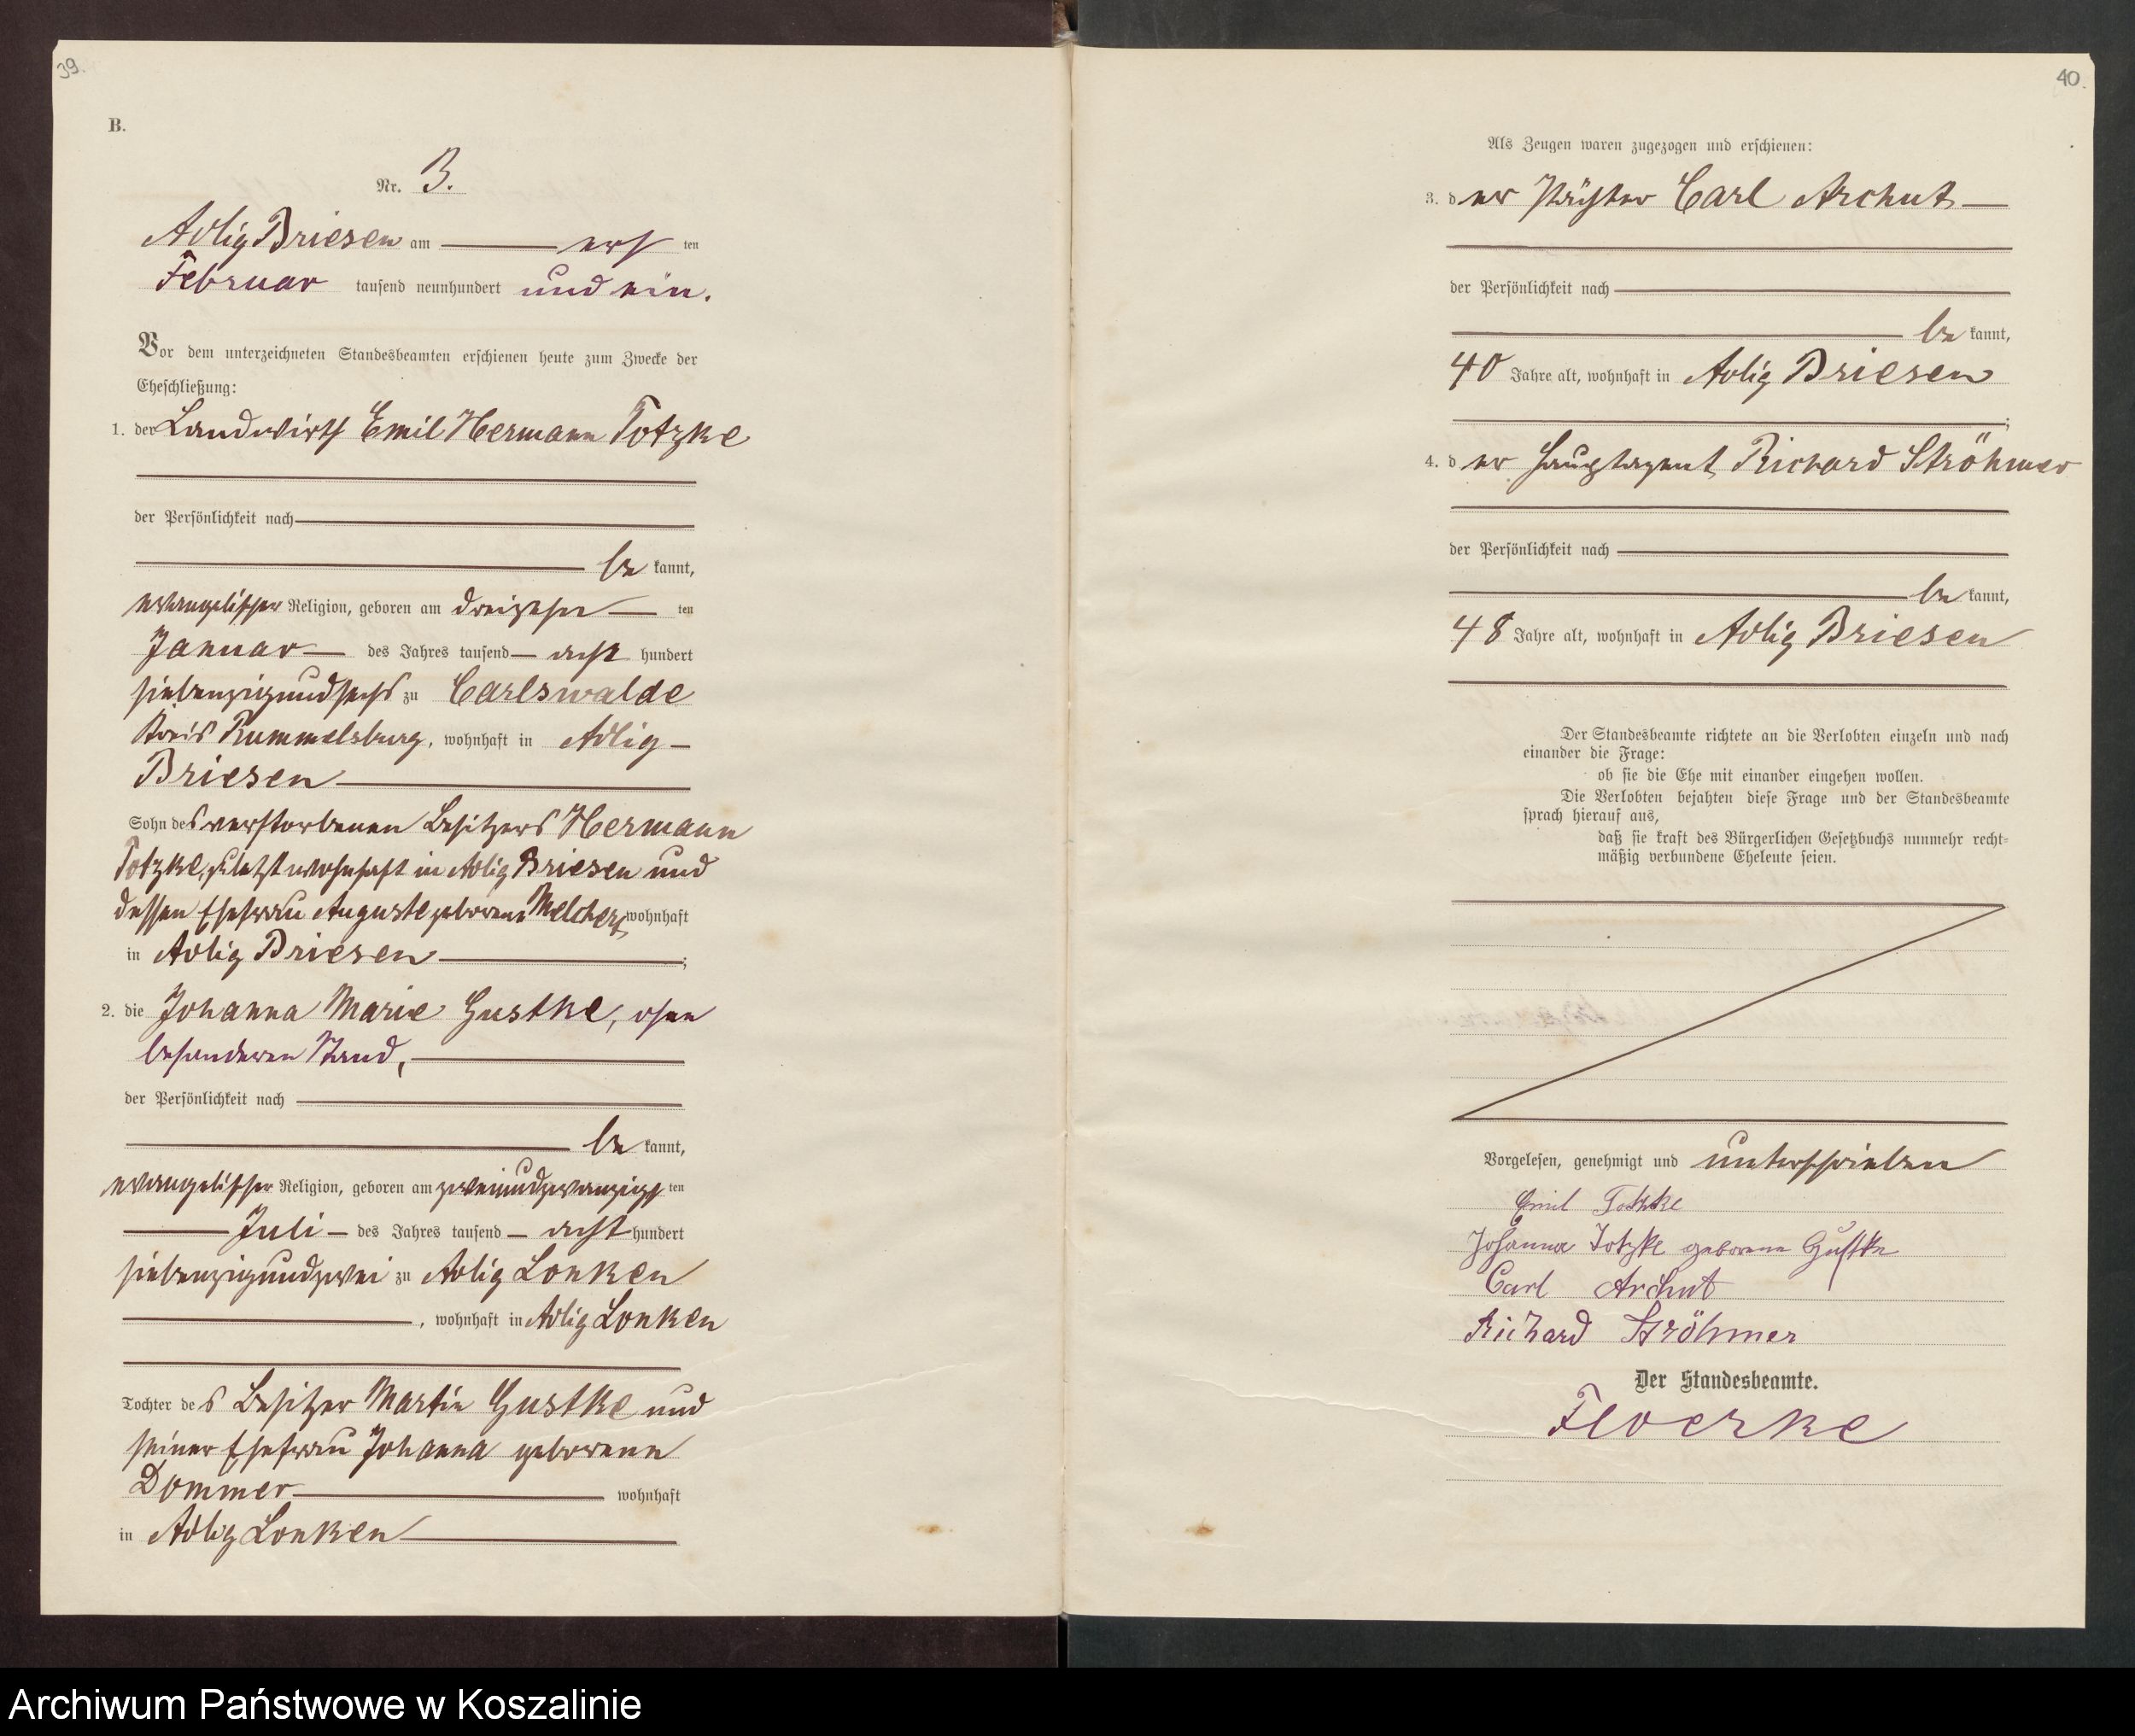 39.
B.
Nr. 3.
Adlig Briesen am erst ten
Februar tausend neunhundert und ein.
Vor dem unterzeichneten Standesbeamten erschienen heute zum Zwecke der
Eheschließung:
1. der Landwirth Emil Hermann Totzke
der Persönlichkeit nach
be kannt,
evangelischer Religion, geboren am dreizehn ten
Januar des Jahres tausend acht hundert
siebenzigundsechs zu Carlswalde
Kreis Rummelsburg, wohnhaft in Adlig
Briesen
Sohn des verstorbenen Besitzers Hermann
Totzke, zuletzt wohnhaft in Adlig Briesen und
dessen Ehefrau Auguste geborene Melchert, wohnhaft
in Adlig Briesen ;
2. die Johanna Marie Gustke, ohne
besonderen Stand,
der Persönlichkeit nach
be kannt,
evangelischer Religion, geboren am zweiundzwanzigst ten
Juli des Jahres tausend acht hundert
siebenzigundzwei zu Adlig Lonken
, wohnhaft in Adlig Lonken
Tochter des Besitzer Martin Gustke und
seiner Ehefrau Johanna geborene
Dommer wohnhaft
in Adlig Lonken
40.
Als Zeugen waren zugezogen und erschienen:
3. der Carl Archut
der Persönlichkeit nach
be kannt,
40 Jahre alt, wohnhaft in Adlig Briesen
;
4. der Hauptagent Richard Ströhmer
der Persönlichkeit nach
be kannt,
48 Jahre alt, wohnhaft in Adlig Briesen
Der Standesbeamte richtete an die Verlobten einzeln und nach
einander die Frage:
ob sie die Ehe mit einander eingehen wollen.
Die Verlobten bejahten diese Frage und der Standesbeamte
sprach hierauf aus,
daß sie kraft des Bürgerlichen Gesetzbuchs nunmehr recht-
mäßig verbundene Eheleute seien.
Vorgelesen, genehmigt und unterschrieben
Emil Totzke
Johanna Totzke geborene Gustke
Carl Archut
Richard Ströhmer
Der Standesbeamte.
Floerke
Archiwum Państwowe w Koszalinie